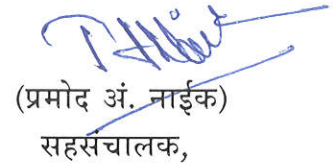 (प्रमोद अं. नाईक)
सहसंचालक,